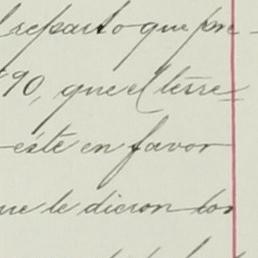 reparto que pre-
90, que el terre=
este en favor
que le dieron los